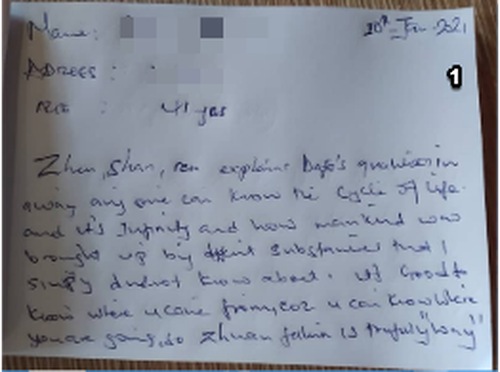 Name:
20th Jan 2021
1
ADRESS :
AGE : 41 yrs
Zhen, Shan, ren explains Dafa's qualities in
away any one can know the Cycle of life.
and it's Infinity and how mankind was
brought up by substances that I
simply did not know about. its Good to
know where u came from, coz u can know where
you are going, so Zhuan falun is "way"